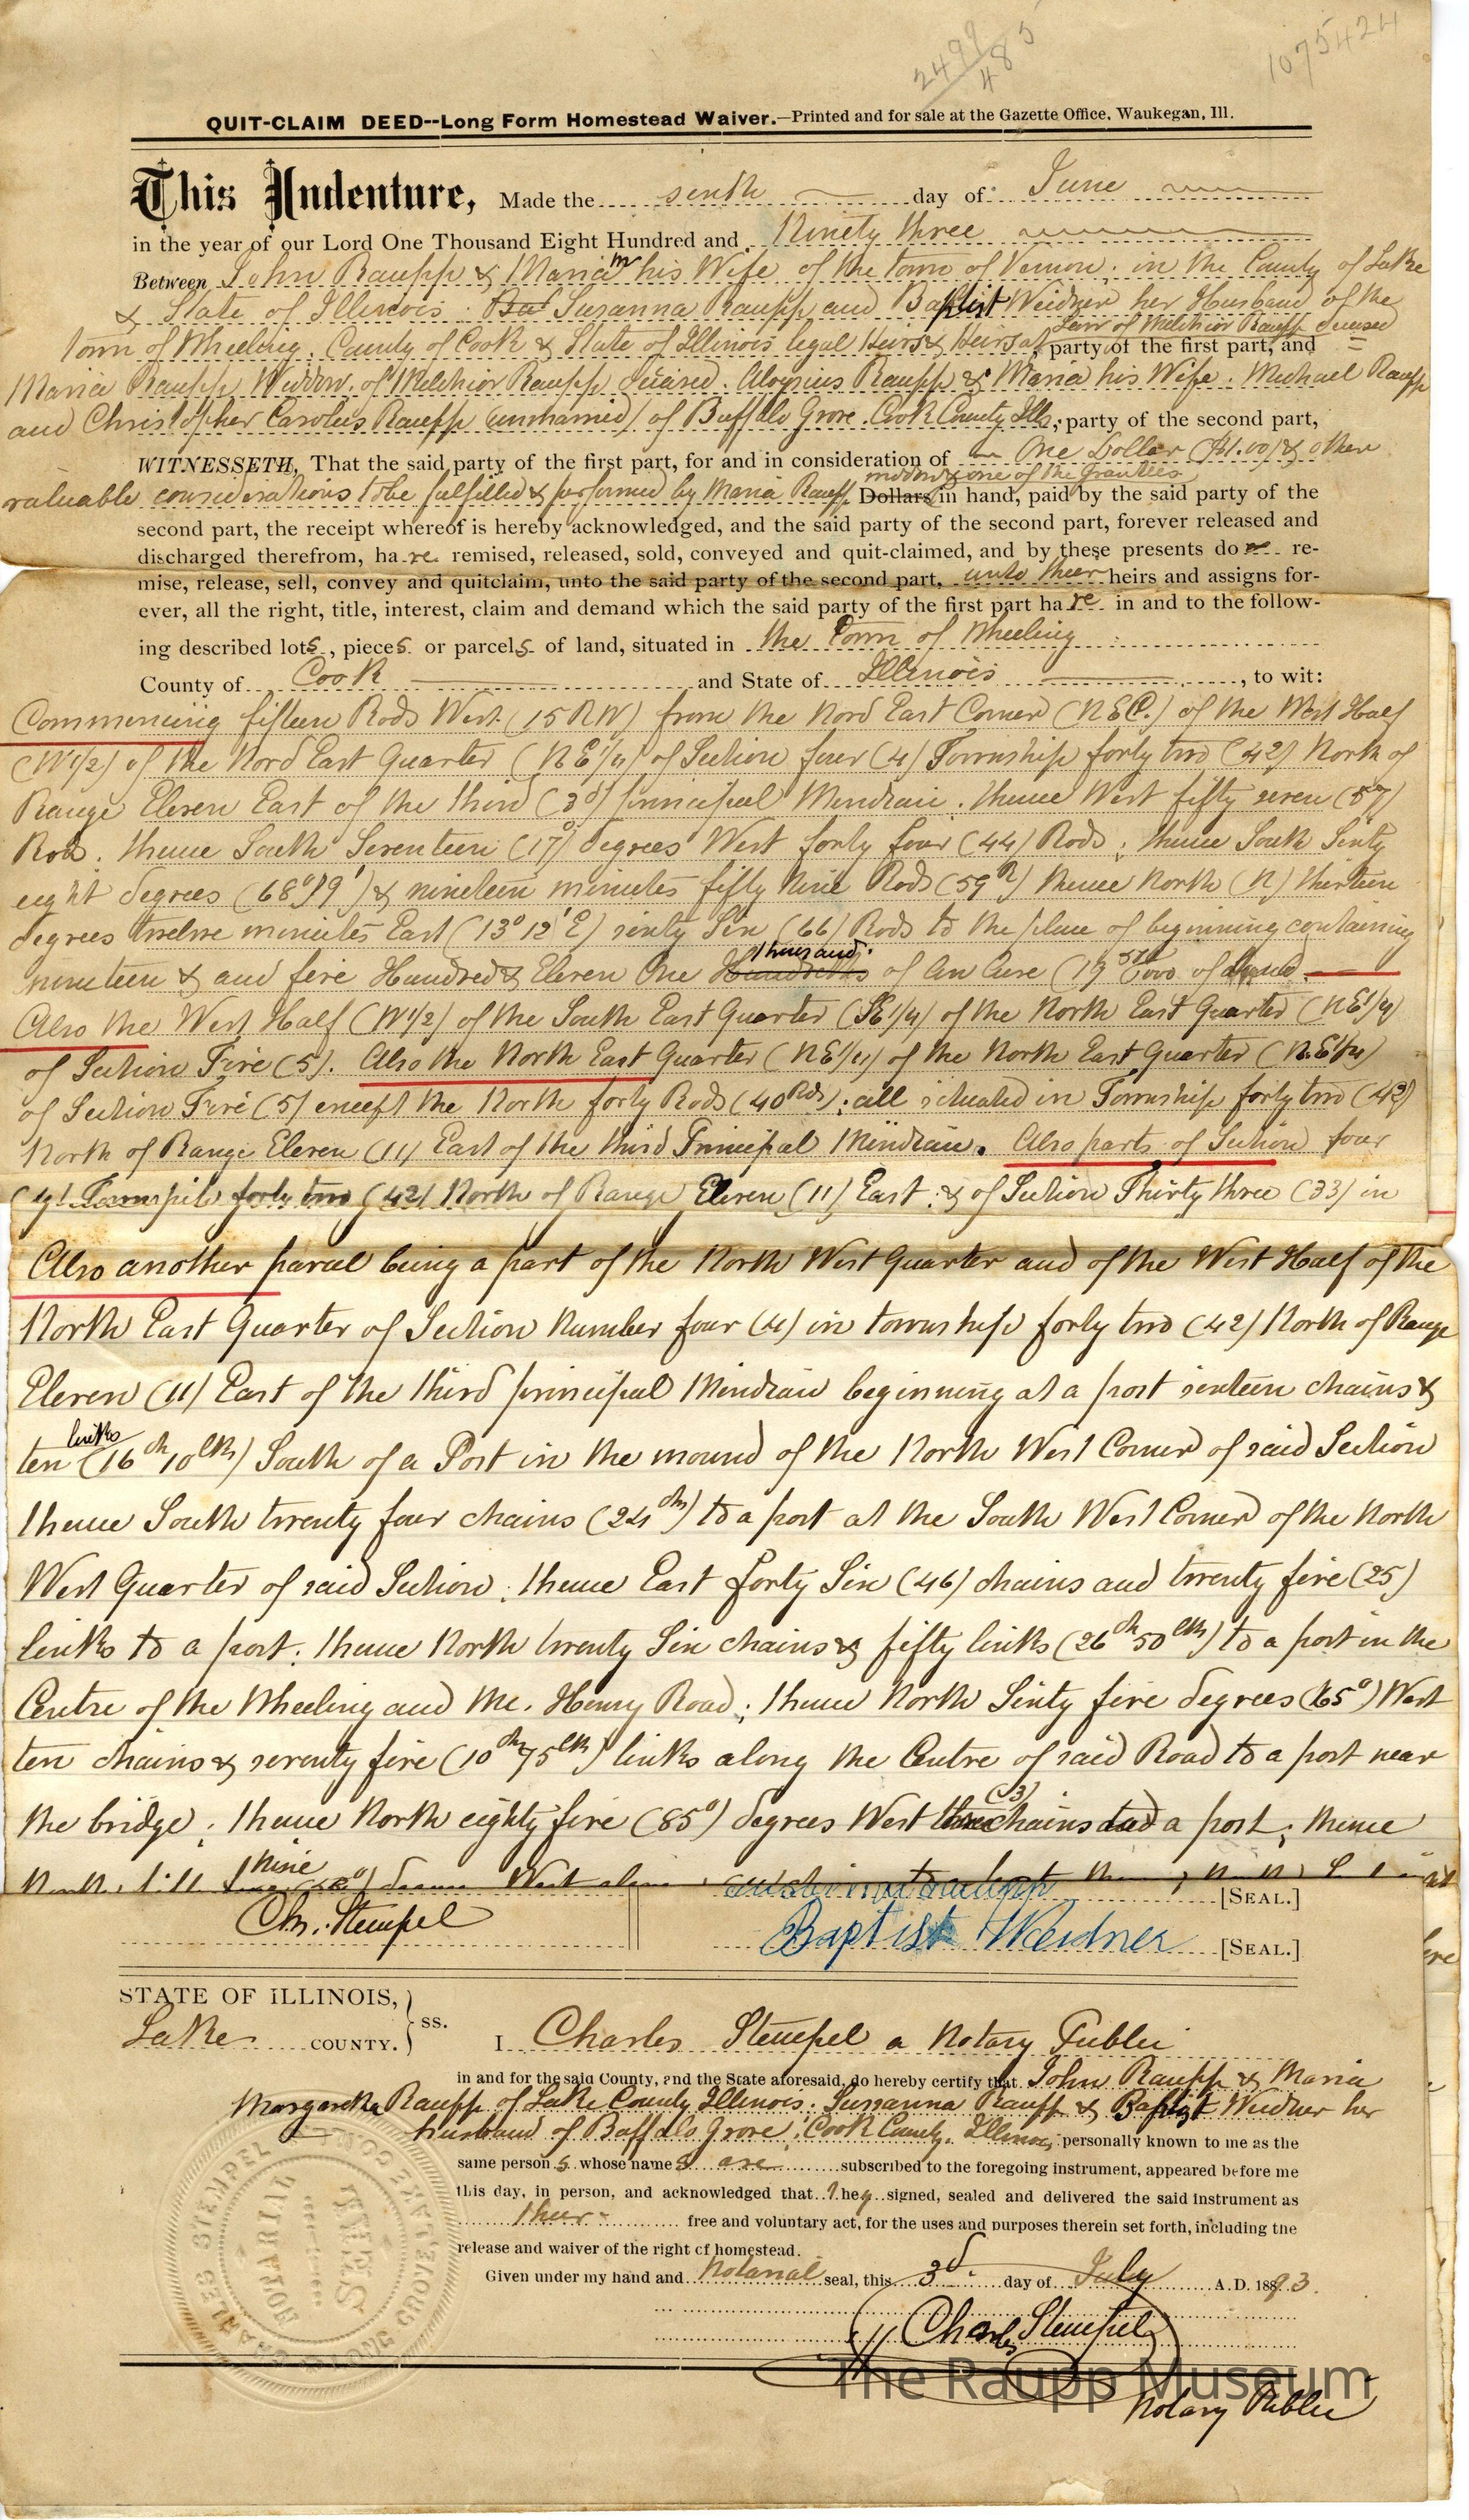 2499
485
1075424
QUIT-CLAIM DEED--Long Form Homestead Waiver.—Printed and for sale at the Gazette Office, Waukegan, Ill.
This Indenture, Made the sixth day of June
in the year of our Lord One Thousand Eight Hundred and Ninety three
Between John Raupp & Maria M his Wife of the town of Vernon, in the County of Lake
& State of Illinois. Susanna Raupp and Baptist Weidner her Husband of the
Law of Melchior Raupp deceased
Town of Wheeling, County of Cook & State of Illinois legal Heirs & Heirs at party of the first part, and
Maria Raupp Widdow of Melchior Raupp deceased. Aloysius Raupp & Maria his Wife. Michael Raupp
and Christopher Carolus Raupp (unmarried) of Buffalo Grove. Cook County Ills, party of the second part,
WITNESSETH, That the said party of the first part, for and in consideration of One Dollar ($1.00) & other
widow & one of the Grantees
valuable considerations to be fulfilled & performed by Maria Raupp Dollars in hand, paid by the said party of the
second part, the receipt whereof is hereby acknowledged, and the said party of the second part, forever released and
discharged therefrom, have remised, released, sold, conveyed and quit-claimed, and by these presents do re-
mise, release, sell, convey and quitclaim, unto the said party of the second part, unto their heirs and assigns for-
ever, all the right, title, interest, claim and demand which the said party of the first part have in and to the follow-
ing described lots, pieces or parcels of land, situated in the Town of Wheeling
County of Cook and State of Illinois, to wit:
Commencing fifteen Rods West (15 R W) from the Nord East Corner (N E C.) of the West Half
(W 1/2) of the Nord East Quarter (N E 1/4) of Section four (4) Township forty two (42) North of
Range Eleven East of the third (3d) principal Meridian. thence West fifty seven (57)
Rods. thence South Seventeen (17°) degrees West forty four (44) Rods; thence South Sixty
eight degrees (68° 19') & nineteen minutes fifty Nine Rods (59 R) thence North (N) thirteen
degrees twelve minutes East (13° 12' E) sixty Six (66) Rods to the place of beginning containing
thousand
nineteen & and five Hundred & Eleven One Hundreds of An Acre (19 511/1000 of
Also the West Half (W 1/2) of the South East Quarter (SE 1/4) of the North East Quarter (NE 1/4)
of Section Five (5). Also the North East Quarter (NE 1/4) of the North East Quarter (N.E 1/4)
of Section Five (5) except the North forty Rods (40 Rds); all situated in Township forty two (42)
North of Range Eleven (11) East of the third Principal Meridian. Also parts of Section four
(4) Township forty two (42) North of Range Eleven (11) East: & of Section Thirty three (33) in
Also another parcel being a part of the North West Quarter and of the West Half of the
North East Quarter of Section Number four (4) in township forty two (42) North of Range
Eleven (11) East of the third principal Meridian beginning at a post sixteen chains &
links
ten (16 ch 10 lks) South of a Post in the mound of the North West Corner of said Section
thence South twenty four chains (24 ch) to a post at the South West Corner of the North
West Quarter of said Section; thence East forty Six (46) chains and twenty five (25)
links to a post; thence North twenty Six chains & fifty links (26 ch 50 lks) to a post in the
Centre of the Wheeling and Mc. Henry Road; thence North Sixty five degrees (65°) West
ten chains & seventy five (10 ch 75 lks) links along the Centre of said Road to a post near
(3)
the bridge; thence North eighty five (85°) degrees West three chains to a post; thence
nine
North fifty degrees West along
[SEAL.]
Ch. Stempel
Baptist Weidner [SEAL.]
STATE OF ILLINOIS,
Lake COUNTY. ss.
I Charles Stempel a Notary Public
in and for the said County, and the State aforesaid, do hereby certify that John Raupp & Maria
Margaretha Raupp of Lake County Illinois. Susanna Raupp & Baptist Weidner her
husband of Buffalo Grove, Cook County, Illinois, personally known to me as the
same persons whose names are subscribed to the foregoing instrument, appeared before me
this day, in person, and acknowledged that they signed, sealed and delivered the said instrument as
their free and voluntary act, for the uses and purposes therein set forth, including the
release and waiver of the right of homestead.
Given under my hand and Notarial seal, this 3d day of July A.D. 1893.
Charles Stempel
Notary Public
CHARLES STEMPEL
NOTARIAL
SEAL
LONG GROVE, LAKE CO. ILL.
The Raupp Museum